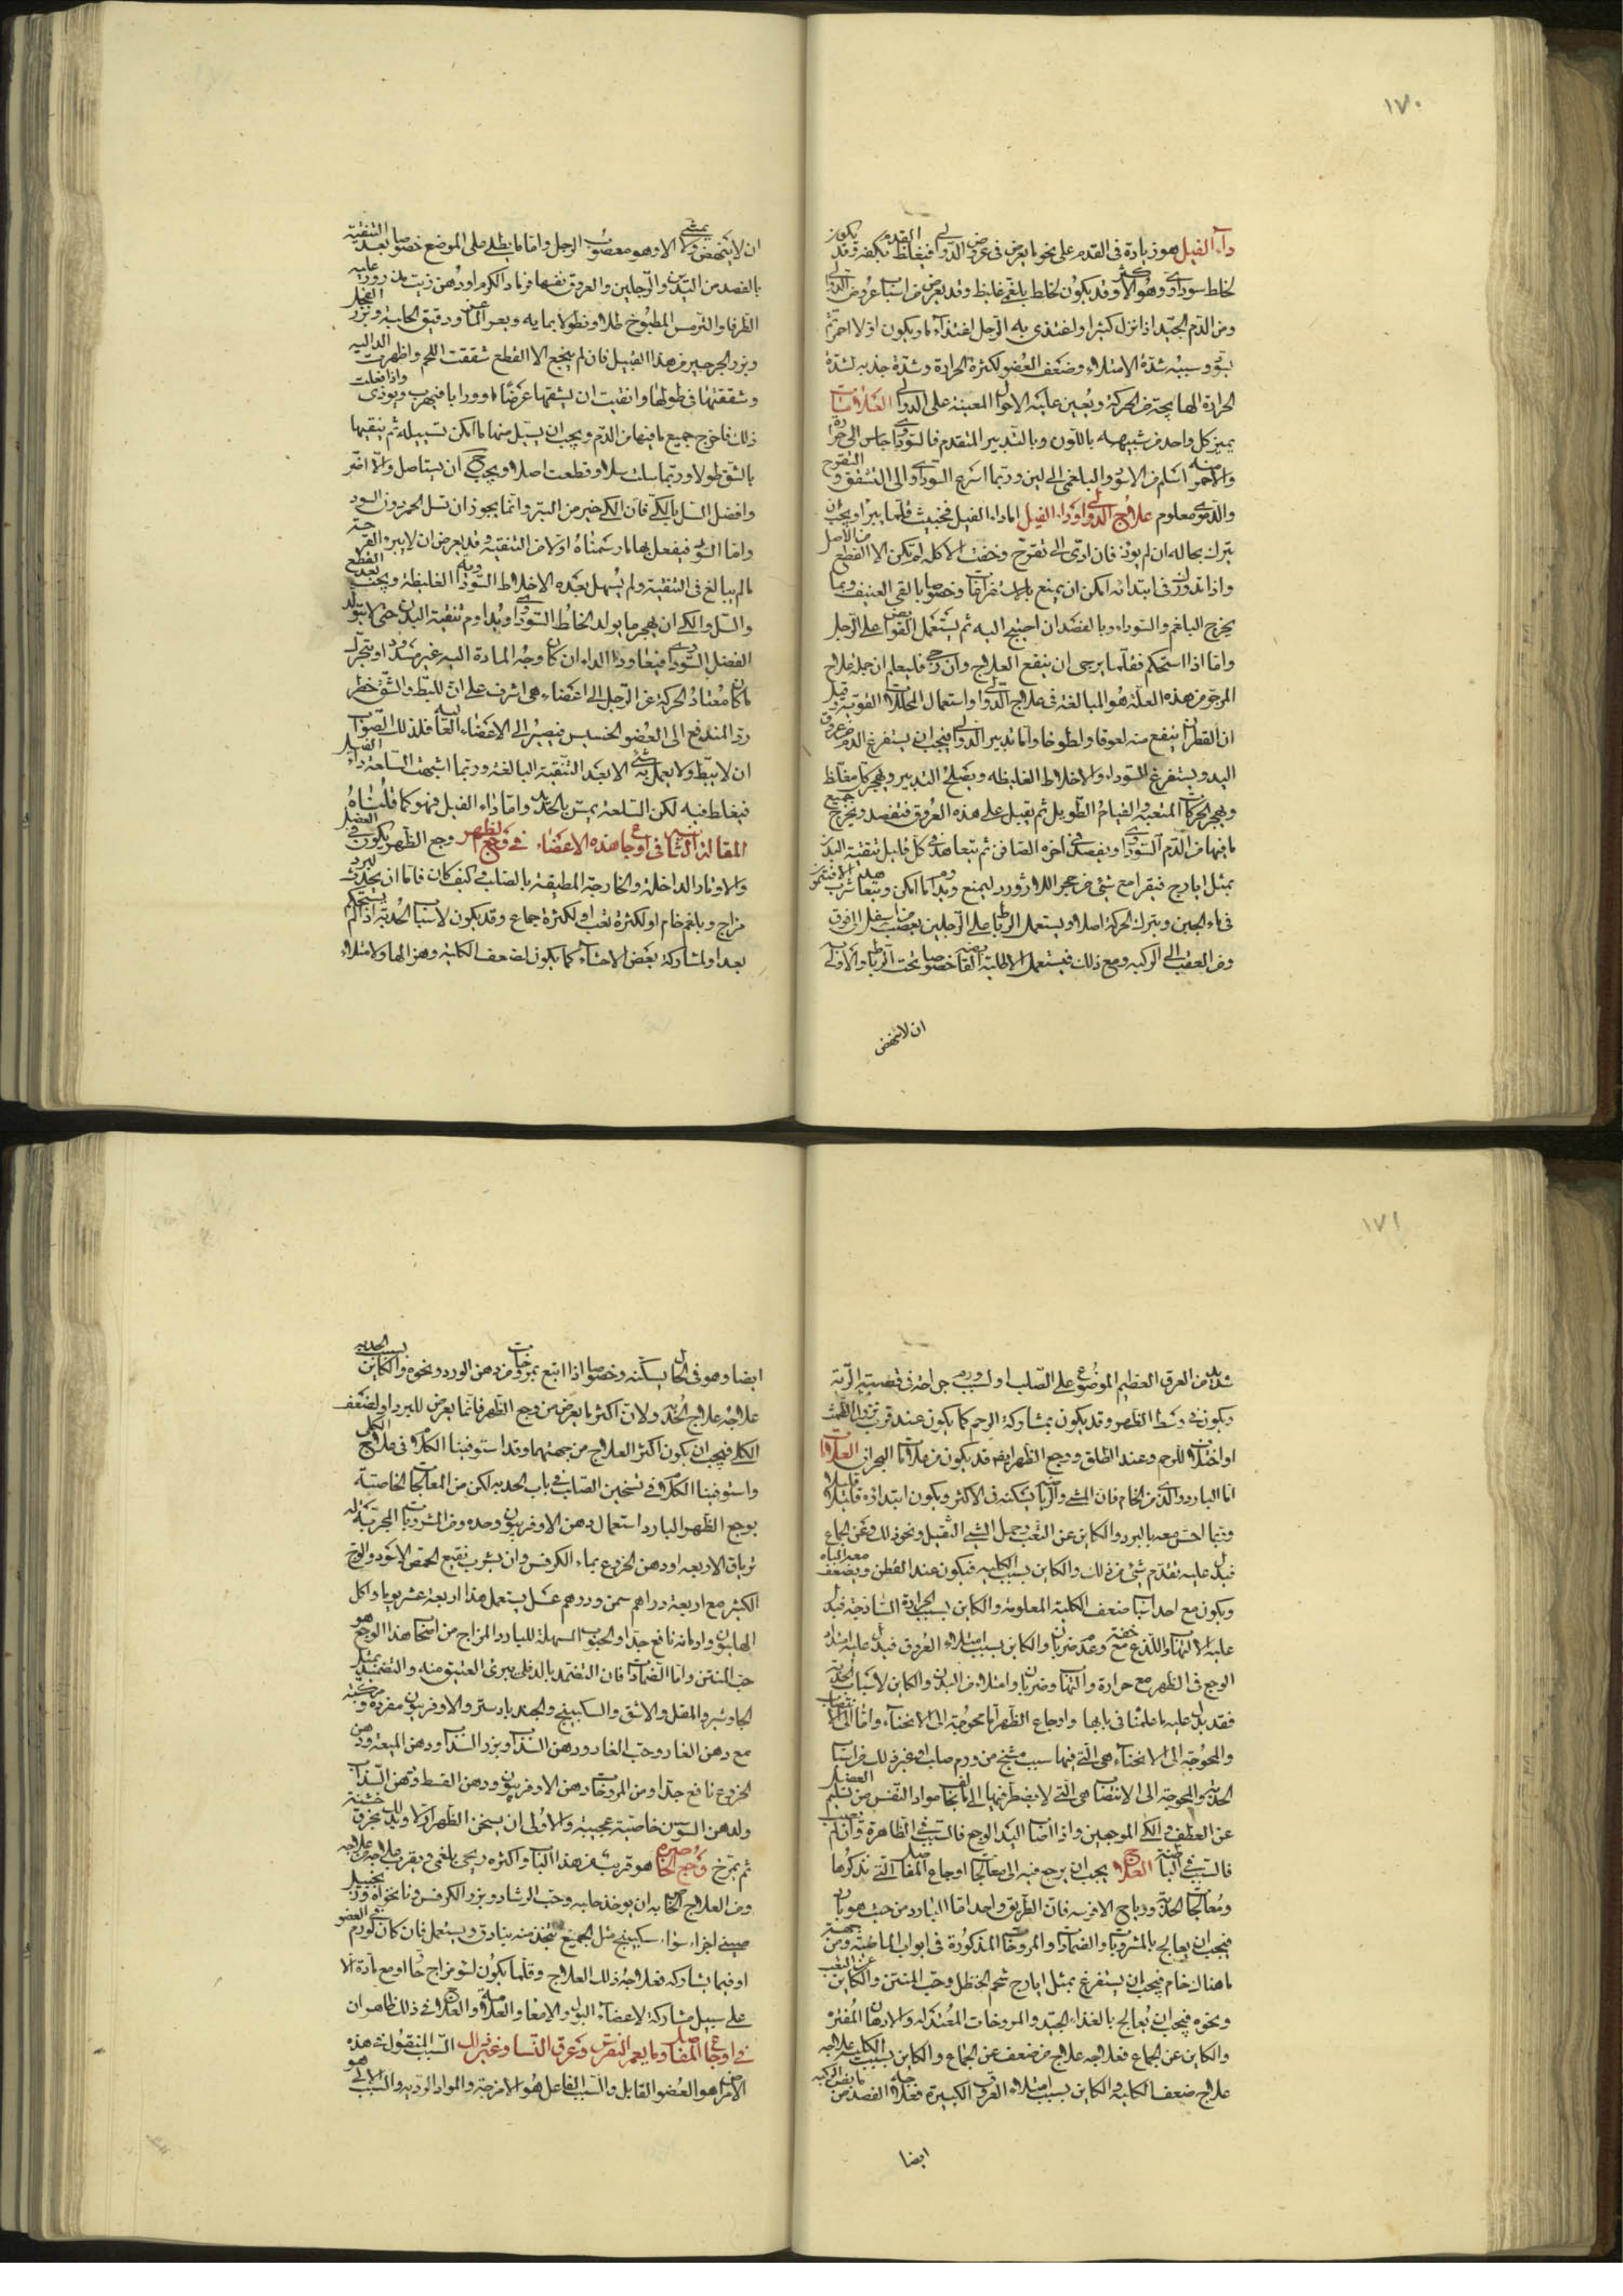 ١٧٠
داء الفيل هو زيادة فى القدم على نحو ما يعرض فى عروض الدوالى فيغلظ القدم ويكثفه وقد يكون
لخلط سوداوى وهو الاكثر وقد يكون لخلط بلغمى غليظ وقد يعرض من اسباب عروض الدوالى
ومن الدم الجيد اذا نزل كثيرا واغتذى به الرجل اغتذاء ما ويكون اولا احمر ثم
يسود وسببه شدة الامتلاء وضعف العضو لكثرة الحرارة وشدة جذبه لشدة
الحرارة الهايجة من الحركة ويعين عليه الاحوال المعينة على الدوالى العلامات
يميز كل واحد من شبيهه باللون وبالتدبير المتقدم فالسوداوى جاس الى حرارة
والاحمر منه اسلم من الاسود والبلغمى الى لين وربما اسرع السوداوى الى التشقق والتقرح
والدموى معلوم علاج الدوالى وداء الفيل اما داء الفيل فخبيث قلما يبرأ ويجب ان
يترك بحاله ان لم يوذ فان ادى الى تقرح وخفت الاكله لم يكن الا القطع من الاصل
واذا تدورك فى ابتدائه امكن ان يمنع بالاستفراغات وخصوصا بالقى العنيف وبما
يخرج البلغم والسوداء وبالفصد ان احتيج اليه ثم يستعمل القوابض على الرجل
واما اذا استحكم فقلما يرجى ان ينفع العلاج وان رجى فليعلم ان جملة علاج
المرجو من هذه العلة هو المبالغة فى علاج الدوالى واستعمال المحللات القوية وقد قيل
ان القطران ينفع منه لعوقا ولطوخا واما تدبير الدوالى فيجب ان يستفرغ الدم من عروق
اليد ويستفرغ السوداء والاخلاط الغليظه ويصلح التدبير ويهجر كل مغلظ
ويهجر الحركات المتعبة والقيام الطويل ثم يقبل على هذه العروق فتفصد ويخرج جميع
ما فيها من الدم السوداوى ويفصد فى اخره الصافن ثم يتعاهد فى كل قليل تنقية البدن
بمثل ايارج فيقرا مع شئ من حجر اللازورد ليمنع ورمه وبدا ما امكن ويتعاهد شرب الافتيمون
فى ماء الجبن ويترك الحركة اصلا ويستعمل الرباط على الرجلين يعصب من اسفل الى فوق
ومن العقب الى الركبه ومع ذلك فيستعمل الاطلية القابضه خصوصا تحت الرباط والاولى به
ان لا ينهض
ان لا ينهض ولا يمشى الا وهو معصوب الرجل واما ما يطلى على الموضع خصوصا بعد التنقية
بالفصد من اليدين والرجلين والعروق نفسها فرماد الكرم او دهن زيت مذرور عليه
الطرفا والترمس المطبوخ طلاء ونطولا بمايه وبعر الماعز ودقيق الحلبة وبزر الفجل
وبزر الجرجير من هذا القبيل فان لم ينجع الا القطع شققت اللحم واظهرت الداليه
وشققتها فى طولها واتقيت ان يشقها عرضا او ورابا فيهرب ويوذى واذا فعلت
ذلك فاخرج جميع ما فيها من الدم ويجب ان يسيل منها ما امكن تسييله ثم ينقيها
بالشق طولا وربما سلت سلا وقطعت اصلا ويحتاج ان يستاصل والا اضر
وافضل السل بالكى فان الكى خير من البتر وانما يجوز ان تسل الحمر دون السود
واما السود فيفعل بها ما رسمناه اولا من التنقية وقد يعرض ان لا يبرو القرحة
مالم يبالغ فى التنقية ولم يسهل بعده الاخلاط السوداويه الغليظة ويجب بعد القطع
والسل والكى ان يهجر ما يولد الخلط السوداوى ويداوم تنقية البدن حتى لا يتولد
الفضل السوداوى فيعاود الداء ان كان وجه المادة اليه غير مسدود او يتحرك
ما كان معتاد الحركة عن الرجل الى اعضاء هى اشرف على ان للبط والشق خطر
رد المندفع الى العضو الخسيس فيصير الى الاعضاء العالية فلذلك الصواب
ان لا يبط ولا يعمل به شئ الا بعد التنقية البالغة وربما اشبهت السلعة داء الفيل
فيغلط فيه لكن السلعة يمس بالحديد واما داء الفيل فهو كما قلناه
المقالة الثانى اوجاع هذه الاعضاء فى وجع الظهر وجع الظهر يكون فى العضل
والاوتار الداخلة والخارجة المطيفة بالصلب كيف كان فاما ان يحدث لبرد
مزاج وبلغم خام او لكثرة تعب او لكثرة جماع وقد يكون لاسباب الحدبة اذا لم يستحكم
بعد او لمشاركة بعض الاحشاء كما يكون لضعف الكلية وهزالها ولامتلاء
١٧١
شديد من العرق العظيم الموضوع على الصلب او لسبب ورم جراحة فى قصبة الرية
ويكون فى وسط الظهر وقد يكون بمشاركة الرحم كما يكون عند قرب نزول الطمث
او اختناق الرحم وعند الطلق ووجع الظهر ايضا قد يكون من علامات البحران العلامات
اما البارد والذى من الخام فان المشى والرياضة يسكنه فى الاكثر ويكون ابتداؤه قليلا قليلا
وربما احس معه بالبرد والكاين عن التعب وحمل الشى الثقيل ونحو ذلك وعن الجماع
فيدل عليه تقدم شئ من ذلك والكاين بسبب الكليه فيكون عند القطن ويضعف معه الباه
ويكون مع احد اسباب ضعف الكلية المعلومة والكاين بسبب الحرارة الساذجة فيدل
عليه الالتهاب واللذع مع خفة وعدم ضربان والكاين بسبب امتلاء العروق فيدل عليه امتداد
الوجع فى الظهر مع حرارة والتهاب وضربان وامتلاء من البدن والكاين لاسباب الحدبة
فقد يدل عليه ما علمنا فى بابها واوجاع الظهر اما محوجة الى الانحناء واما الى الانتصاب
والمحوجة الى الانحناء هى التى فيها سبب مشنج من ورم صلب او غير ذلك من اسباب
الحدبة والمحوجة الى الانتصاب هى التى لا يضطر فيها الى ما يخالف مواد النفس من تسليم العضل
عن العطف والكى الموجعين واذا اصاب اليد الوجع فالسبب فى الظاهرة وان لم يصب
فالسبب فى الباطنة العلاج يجب ان يرجع فيه الى معالجات اوجاع المفاصل التى نذكرها
ومعالجات الحدبة ورياح الافرسه فان الطريق واحد اما البارد من حيث هو بارد
فيجب ان يعالج بالمشروبات والضمادات والمروخات المذكورة فى ابواب الماضية ومن جهته
ما هناك خام فيجب ان يستفرغ بمثل ايارج شحم الحنظل وحب المنتن والكاين عن التعب
ونحوه فيجب ان يعالج بالغذاء الجيد والمروخات المعتدله والادهان المفترة
والكاين عن الجماع فعلاجه علاج من ضعف عن الجماع والكاين بسبب الكلية علاجه
علاج ضعف الكلية والكاين بسبب امتلاء العروق الكبيرة فعلاجه الفصد من مابض الركبه
ايضا
ايضا وهو فى الحال يسكنه وخصوصا اذا اتبع بمروخات من دهن الورد ونحوه والكاين بسبب الحدبه
علاجه علاج الحدبة ولان اكثر ما يعرض من وجع الظهر فانما يعرض للبرد او لضعف
الكلى فيجب ان يكون اكثر العلاج من جهتهما وقد استوفينا الكلام فى علاج الكلى
واستوفينا الكلام فى تسخين الصلب فى باب الحدبه لكن من المعالجات الخاصية
بوجع الظهر البارد استعمال دهن الاوفربيون وحده ومن المشروبات المجربة له
ترياق الاربعه او دهن الخروع بماء الكرفس وان يشرب نقيع الحمص الاسود والوج
الكثير مع اربعة دراهم سمن ودرهم عسل يستعمل هذا اربعة عشر يوما واكل
الهليون وادمانه نافع جدا والحبوب المسهلة للبارد المزاج من اصحاب هذا الوجع هو
حب المنتن واما الضمادات فان التضمد بالدفلى يبرئ العتيق منه والتضميد بمثل
الجاوشير والمقل والاشق والسكبينج والجندبادستر والاوفربيون مفردة ومركبة
مع دهن الغار وحب الغار ودهن السذاب وبزر السذاب ودهن الميعة ودهن
الخروع نافع جدا ومن المروخات دهن الاوفربيون ودهن القسط ودهن السذاب
ولدهن السوسن خاصية عجيبة والاولى ان يسخن الظهر اولا ويدلك بخرق خشنة
ثم يمرخ وجع الخاصرة هو قريب من هذا الباب واكثره ريحى بلغمى ويقرب علاجه من علاجه
ومن العلاج الخاص به ان يوخذ حلبه وحب الرشاد وبزر الكرفس ونانخواه وزنجبيل
صينى اجزاء سواء سكبينج مثل الجميع يتخذ منه بنادق ويستعمل فان كان لورم فى العضو
او فيما يشاركه فعلاجه ذلك العلاج وقلما يكون لسو مزاج حار او مع مادة الا
على سبيل مشاركة لاعضاء البول والامعاء والعلامة والعلاج فى ذلك ظاهران
فى اوجاع المفاصل وما يعم النقرس وعرق النسا وغير ذلك السبب المنقول فى هذه
الامراض هو العضو القابل والسبب الفاعل هو الامزجة والمواد الردية والسبب الالى هو